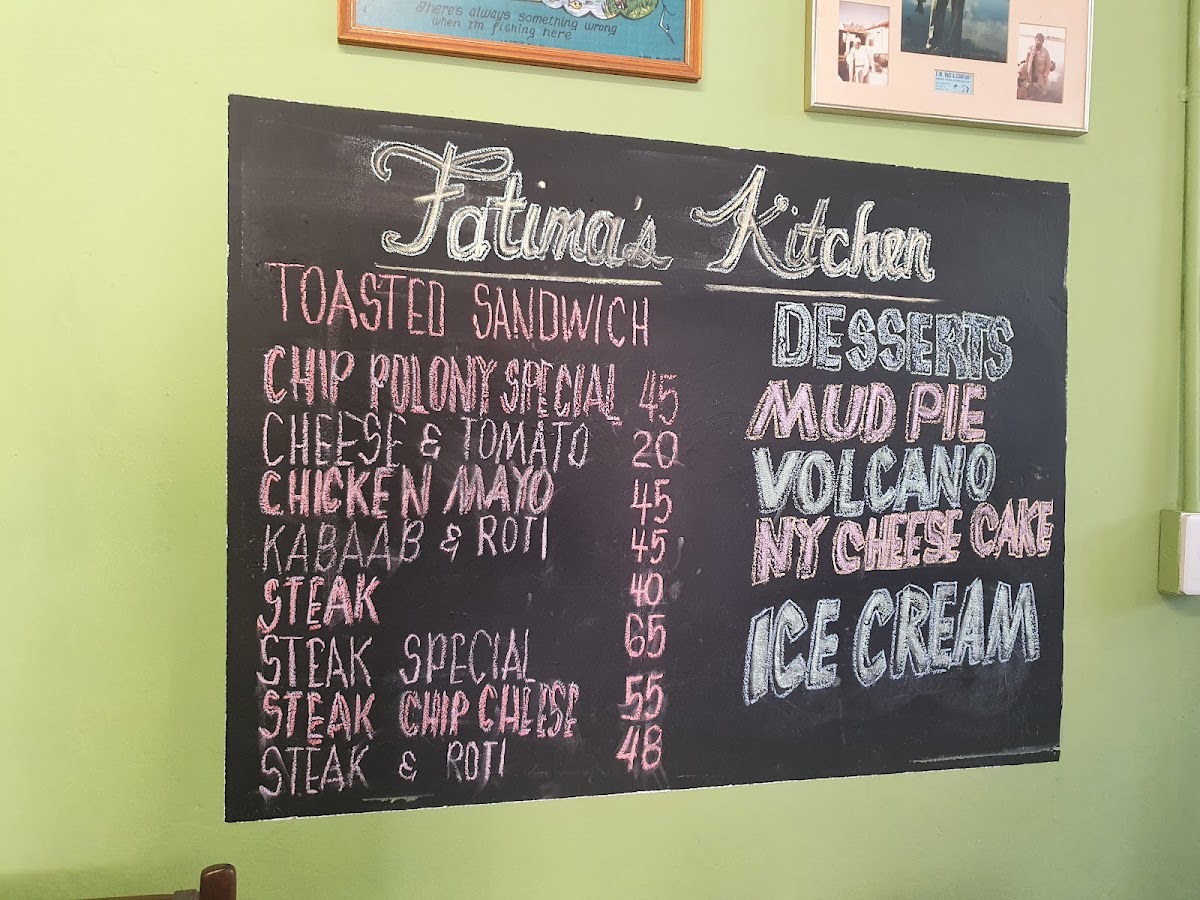 There's always something wrong
when I'm fishing here
Fatima's Kitchen
TOASTED SANDWICH
CHIP POLONY SPECIAL 45
CHEESE & TOMATO 20
CHICKEN MAYO 45
KABAAB & ROTI 45
STEAK 40
STEAK SPECIAL 65
STEAK CHIP CHEESE 55
STEAK & ROTI 48
DESSERTS
MUD PIE
VOLCANO
NY CHEESE CAKE
ICE CREAM